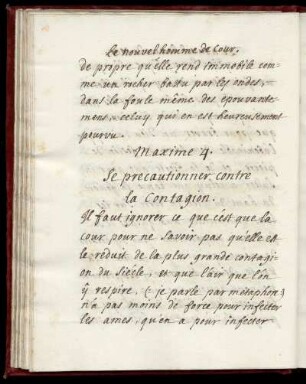 Le nouvel homme de Cour.
de propre qu'elle rend immobile com-
me un rocher battu par les ondes,
dans la foule même des épouvante-
mens, celuy qui en est heureusement
pourvu.
Maxime 4.
Se precautionner contre
la Contagion.
Il faut ignorer ce que c'est que la
cour pour ne savoir pas qu'elle est
le réduit de la plus grande contagi-
on du Siècle, et que l'air que l'on
ÿ respire, (je parle par métaphore)
n'a pas moins de force pour infecter
les ames, qu'en a pour infecter